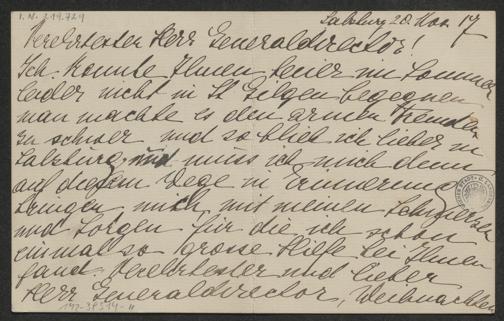 I.N. 219.724
Salzburg 20 Nov. 17
Verehrtester Herr Generaldirector!
Ich konnte Ihnen heier im Sommer
leider nicht in St Gilgen begegnen
man machte es den armen Fremden
zu schwer und so blieb ich lieber in
Salzburg, und muss ich mich denn
auf diesem Wege in Erinnerung
bringen mich mit meinen Schmerzen
und Sorgen für die ich schon
einmal so grosse Hilfe bei Ihnen
fand. Verehrtester und lieber
Herr Generaldirector, Weihnachten